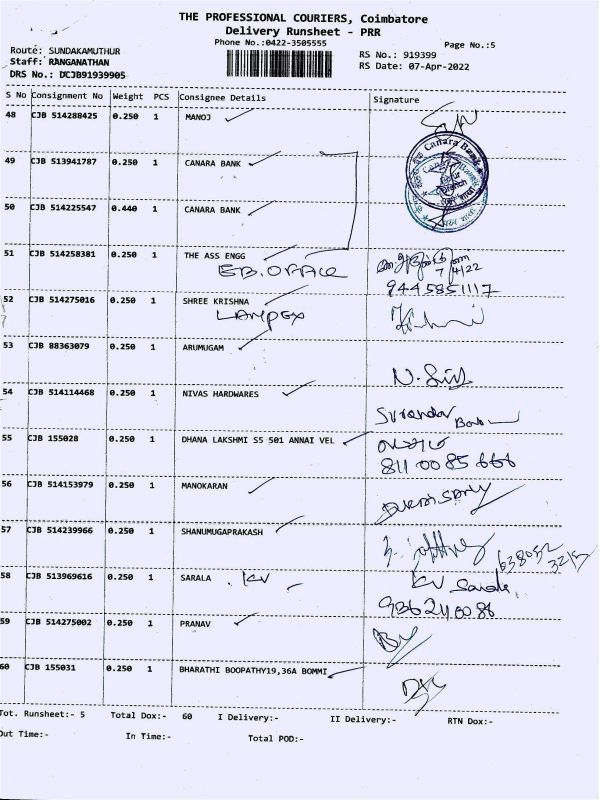 THE PROFESSIONAL COURIERS, Coimbatore
Delivery Runsheet - PRR
Phone No.:0422-3505555
Page No.:5
Route: SUNDAKAMUTHUR
RS No.: 919399
Staff: RANGANATHAN
RS Date: 07-Apr-2022
DRS No.: DCJB91939905
S No Consignment No Weight PCS Consignee Details Signature
48 CJB 514288425 0.250 1 MANOJ
49 CJB 513941787 0.250 1 CANARA BANK
Canara Bank
Branch
50 CJB 514225547 0.440 1 CANARA BANK
51 CJB 514258381 0.250 1 THE ASS ENGG
EB. OFFICE
7/4/22
9445851117
52 CJB 514275016 0.250 1 SHREE KRISHNA
LAMPEX
53 CJB 88363079 0.250 1 ARUMUGAM
54 CJB 514114468 0.250 1 NIVAS HARDWARES
Surendar
55 CJB 155028 0.250 1 DHANA LAKSHMI S5 501 ANNAI VEL
811 00 85 666
56 CJB 514153979 0.250 1 MANOKARAN
57 CJB 514239966 0.250 1 SHANUMUGAPRAKASH
638052
3215
58 CJB 513969616 0.250 1 SARALA . KV
KV Sarala
936240086
59 CJB 514275002 0.250 1 PRANAV
60 CJB 155031 0.250 1 BHARATHI BOOPATHY19,36A BOMMI
Tot. Runsheet:- 5 Total Dox:- 60 I Delivery:- II Delivery:- RTN Dox:-
Out Time:- In Time:- Total POD:-